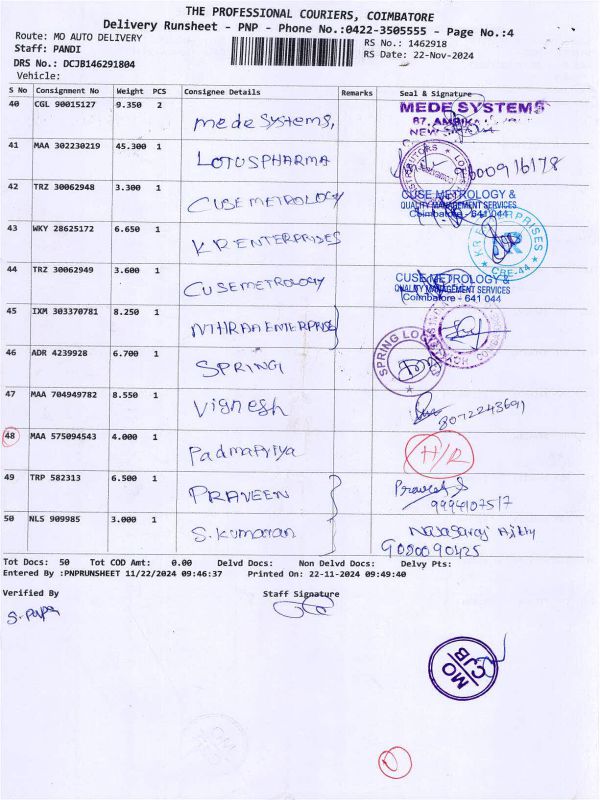 THE PROFESSIONAL COURIERS, COIMBATORE
Delivery Runsheet - PNP - Phone No.:0422-3505555 - Page No.:4
Route: MO AUTO DELIVERY
RS No.: 1462918
Staff: PANDI
RS Date: 22-Nov-2024
DRS No.: DCJB146291804
Vehicle:
S No Consignment No Weight PCS Consignee Details Remarks Seal & Signature
40 CGL 90015127 9.350 2 Mede Systems, MEDE SYSTEMS
87,
41 MAA 302230219 45.300 1 LOTUSPHARMA 9600916178
42 TRZ 30062948 3.300 1 CUSE METROLOGY CUSE METROLOGY &
QUALITY MANAGEMENT SERVICES
Coimbatore - 641 044
43 WKY 28625172 6.650 1 KR ENTERPRISES KR ENTERPRISES
KR
CBE-44
44 TRZ 30062949 3.600 1 CUSEMETROLOGY CUSE METROLOGY &
QUALITY MANAGEMENT SERVICES
Coimbatore - 641 044
45 IXM 303370781 8.250 1 ENTERPRISE
46 ADR 4239928 6.700 1 SPRING SPRING
47 MAA 704949782 8.550 1 Vignesh 8072243691
48 MAA 575094543 4.000 1 Padmapriya H/R
49 TRP 582313 6.500 1 PRAVEEN Praveen S
9994107517
50 NLS 909985 3.000 1 S. Kumaran
9080090425
Tot Docs: 50 Tot COD Amt: 0.00 Delvd Docs: Non Delvd Docs: Delvy Pts:
Entered By :PNPRUNSHEET 11/22/2024 09:46:37 Printed On: 22-11-2024 09:49:40
Verified By Staff Signature
MO
CJB